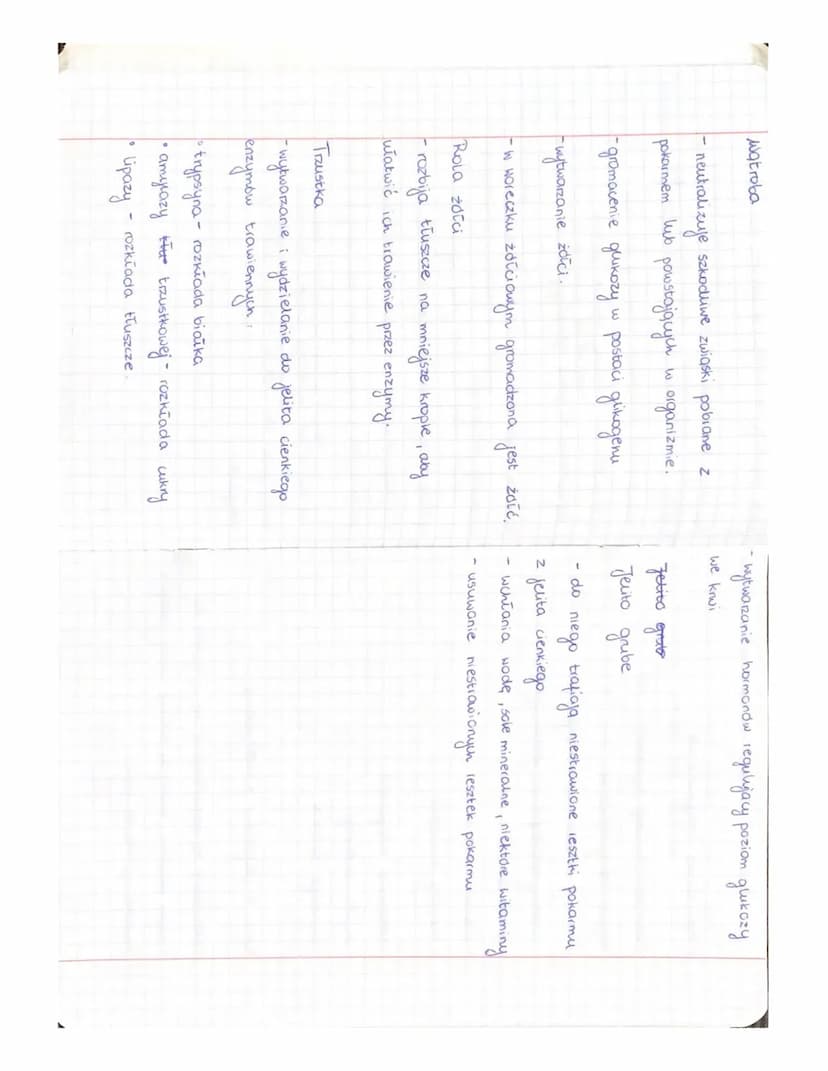 Wątroba
- neutralizuje szkodliwe związki pobrane z
pokarmem lub powstających w organizmie.
- gromacenie glukozy w postaci glikogenu
- wytwarzanie żółci.
- w woreczku żółciowym gromadzona jest żółć.
Rola żółci
- rozbija tłuszcze na mniejsze krople, aby
ułatwić ich trawienie przez enzymy.
Trzustka
- wytwarzanie i wydzielanie do jelita cienkiego
enzymów trawiennych:
• trypsyna - rozkłada białka
• amylazy trzustkowej - rozkłada cukry
• lipazy - rozkłada tłuszcze.
- wytwarzanie hormonów regulujący poziom glukozy
we krwi
Jelito grube
Jelito grube
- do niego trafiają niestrawione resztki pokarmu
z jelita cienkiego
- wchłania wodę, sole mineralne, niektóre witaminy
- usuwanie niestrawionych resztek pokarmu